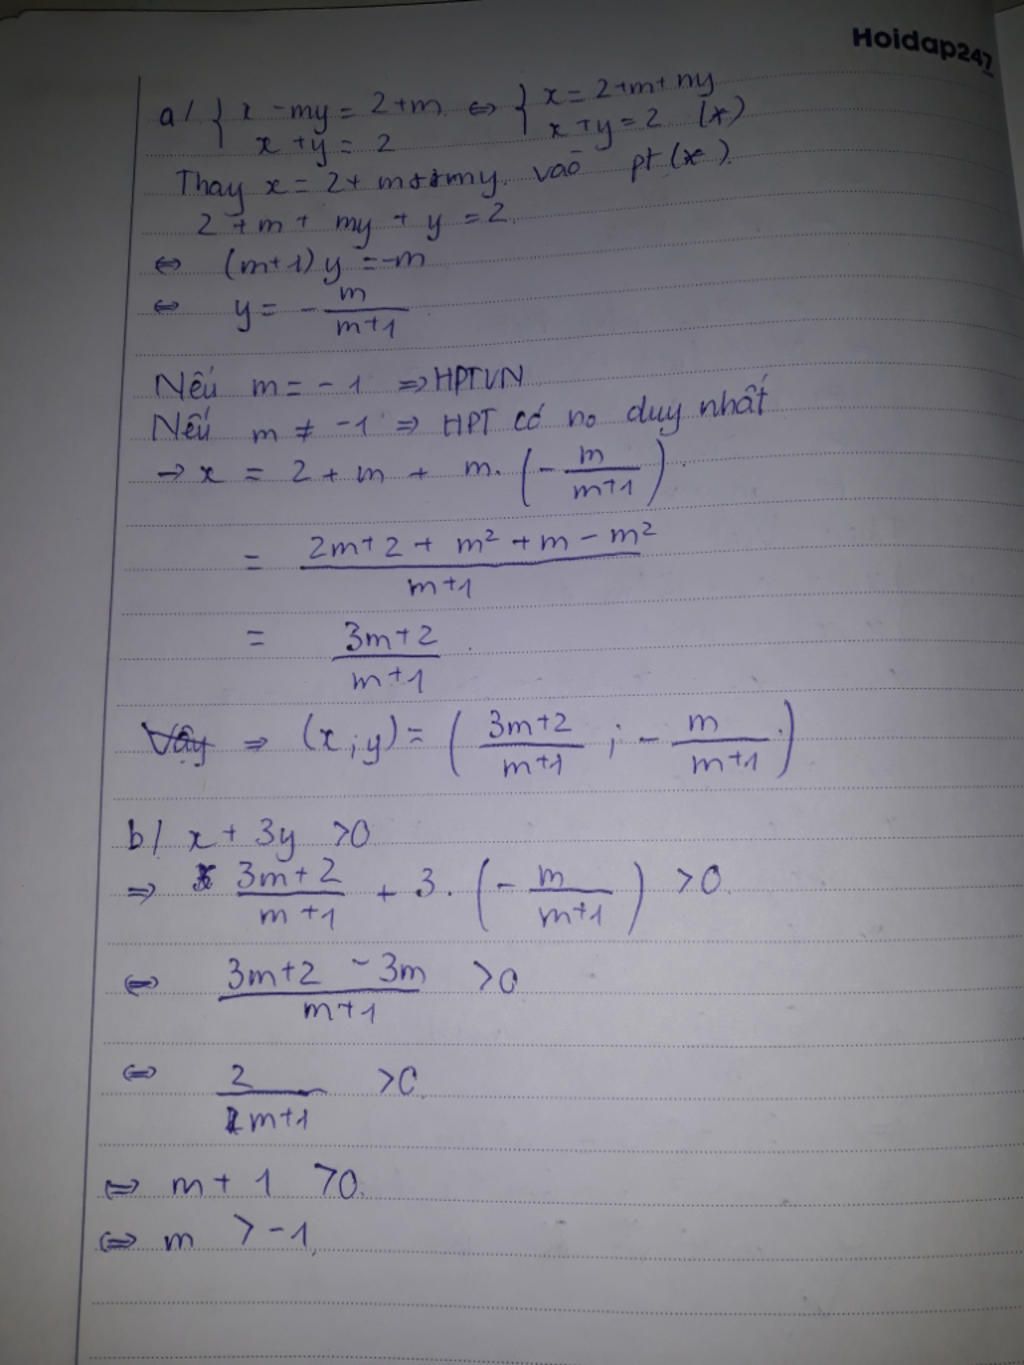 Hoidap247
a/ { x - my = 2+m ⇔ { x = 2+m+ my
x +y = 2 x+y = 2 (*)
Thay x = 2+ m+my. vào pt (*).
2 +m + my + y = 2.
⇔ (m+1) y = -m
⇔ y = - m/(m+1)
Nếu m = -1 ⇒ HPTVN
Nếu m ≠ -1 ⇒ HPT có no duy nhất
→ x = 2 + m + m. (- m/(m+1)).
= (2m+2 + m² + m - m²)/(m+1)
= (3m+2)/(m+1).
Vậy ⇒ (x;y) = ((3m+2)/(m+1) ; - m/(m+1))
b/ x + 3y >0
⇒ (3m+2)/(m+1) + 3. (- m/(m+1)) >0.
⇔ (3m+2 - 3m)/(m+1) >0
⇔ 2/(m+1) >0.
⇔ m + 1 >0.
⇔ m > -1.